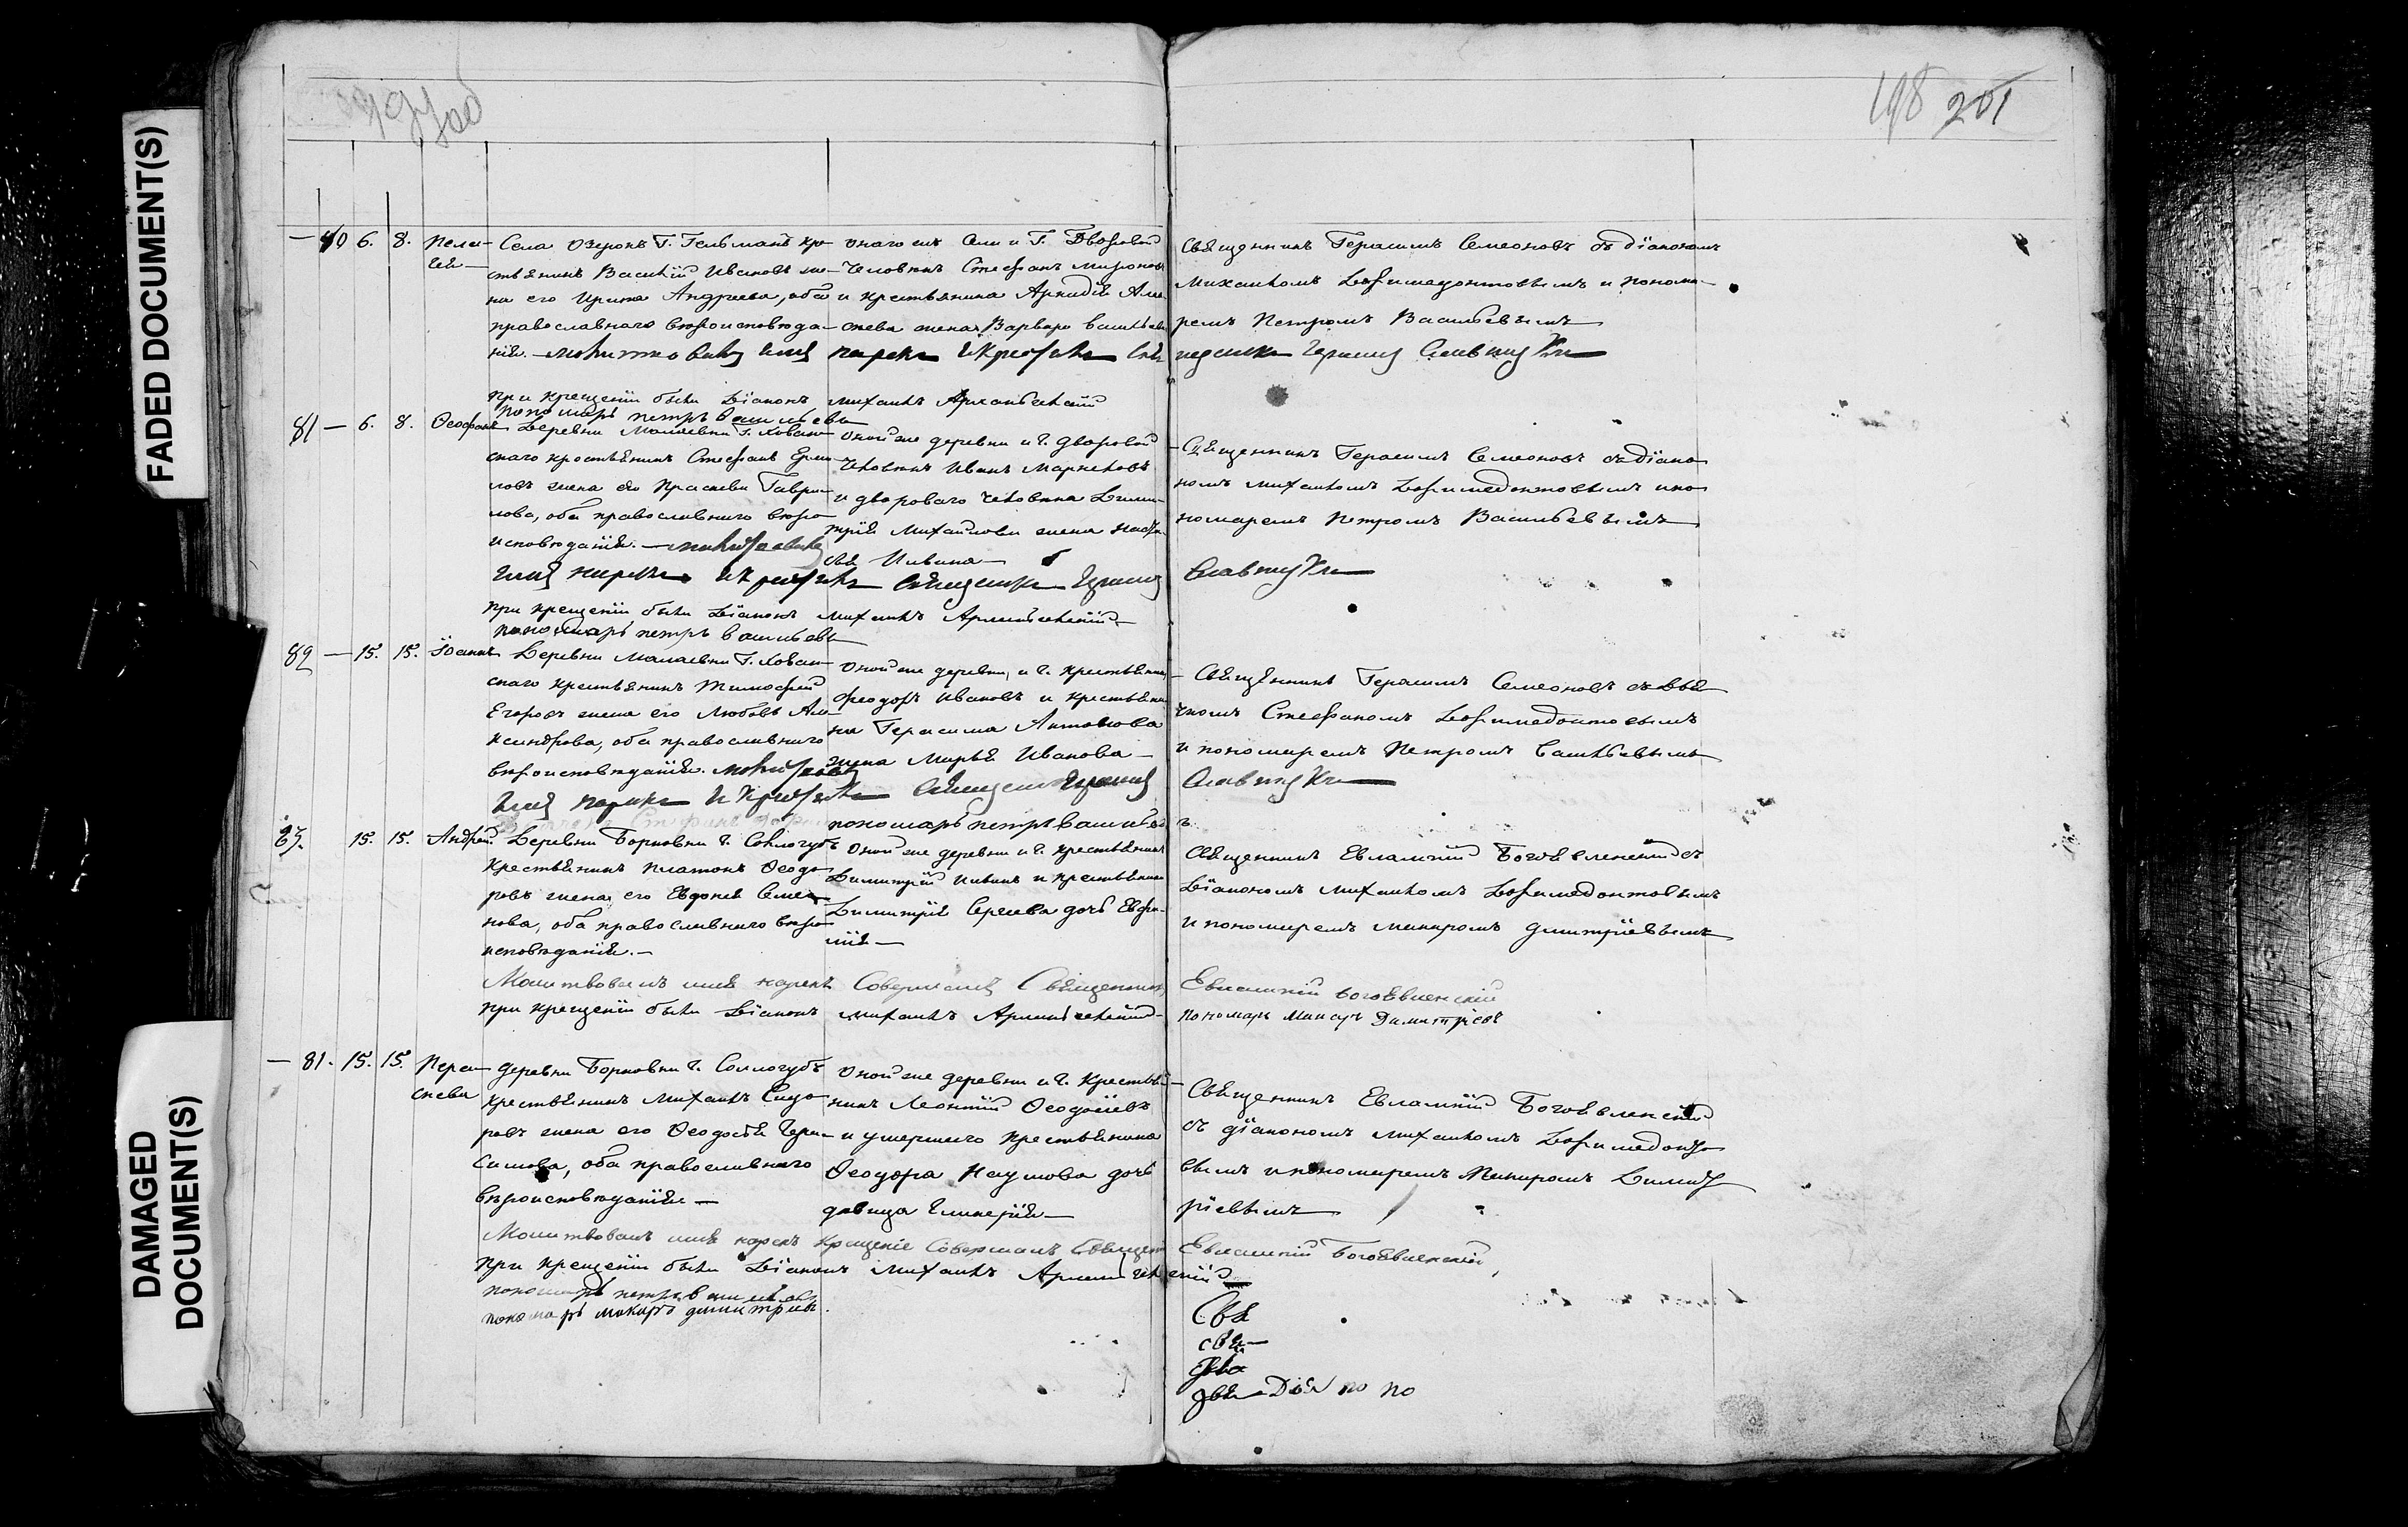 FADED DOCUMENT(S)
DAMAGED DOCUMENT(S)
198 201
— 80 6. 8. Пела-
гея —
Села Озерокъ Г. Гельманъ кре-
стьянинъ Василій Ивановъ же-
на его Ирина Андреева, оба
православнаго вѣроисповѣда-
нія. — молитвовалъ имя
онаго же села и Г. Дворовой
человѣкъ Стефанъ Мироновъ
и крестьянина Аркадія
жена Варвара Васильева
нарекъ и крестилъ Свя
Священникъ Герасимъ Семеновъ съ діакономъ
Михаиломъ Евримедонтовымъ и понома-
ремъ Петромъ Васильевымъ
щенникъ Герасимъ
при крещеніи были Діаконъ Михаилъ Архангельскій
пономарь петръ васильевъ
81 — 6. 8. Ѳеофанъ
Деревни Малаевки Г. Хован-
скаго крестьянинъ Стефанъ Ерми-
ловъ жена его Праскева Гаври-
лова, оба православнаго вѣро-
исповѣданія. — молитвовалъ
имя нарекъ и крестилъ Священникъ Герасимъ
оной же деревни и Г. дворовой
человѣкъ Иванъ Маркеловъ
и двороваго человѣка Дими-
трія Михайлова жена Наста-
сья Ивана —
Священникъ Герасимъ Семеновъ съ діако-
номъ Михаиломъ Евримедонтовымъ и по-
номаремъ Петромъ Васильевымъ
при крещеніи были Діаконъ Михаилъ Архангельскій —
пономарь петръ васильевъ
82 — 15. 15. Іоаннъ
Деревни Малаевки Г. Хован-
скаго крестьянинъ Тимофей
Егоровъ жена его Любовь Але-
ксандрова, оба православнаго
вѣроисповѣданія. молитвовалъ
имя нарекъ и крестилъ Священникъ Герасимъ
оной же деревни, и Г. крестьянинъ
Феодоръ Ивановъ и крестьяни-
на Герасима Антонова
жена Марья Иванова —
Священникъ Герасимъ Семеновъ съ дья-
чкомъ Стефаномъ Евримедонтовымъ
и пономаремъ Петромъ Васильевымъ
пономарь петръ васильевъ
83. 15. 15. Андрей
Деревни Борковки Г. Сологубъ
крестьянинъ Платонъ Ѳеодо-
ровъ жена его Евдокея Семе-
нова, оба православнаго вѣро-
исповѣданія. —
оной же деревни и Г. крестьянинъ
Димитрій Иванъ и крестьянина
Димитрія Сергеева дочь Евфи-
мія —
Священникъ Евлампій Богоявленскій съ
Діакономъ Михаиломъ Евримедонтовымъ
и пономаремъ Макаромъ Димитріевымъ
Молитвовалъ имя нарекъ Совершалъ Священникъ Евлампій Богоявленскій
при крещеніи были Діаконъ Михаилъ Архангельскій —
пономарь Макаръ Димитріевъ
— 81. 15. 15. Пера-
скева
деревни Борковки Г. Соллогубъ
крестьянинъ Михаилъ Сидо-
ровъ жена его Ѳеодосія Гера-
симова, оба православнаго
вѣроисповѣданія —
оной же деревни и Г. крестья-
нинъ Леонтій Ѳеодосіевъ
и умершаго крестьянина
Ѳеодора Наумова дочь
дѣвица Гликерія —
Священникъ Евлампій Богоявленскій
съ діакономъ Михаиломъ Евримедонто-
вымъ и пономаремъ Макаромъ Димит-
ріевымъ
Молитвовалъ имя нарекъ крещеніе Совершалъ Священ Евлампій Богоявленскій
при крещеніи были Діаконъ Михаилъ Архангельскій
пономарь петръ васильевъ
пономарь макаръ димитріевъ.
Свя
свя—
двя Діа но но